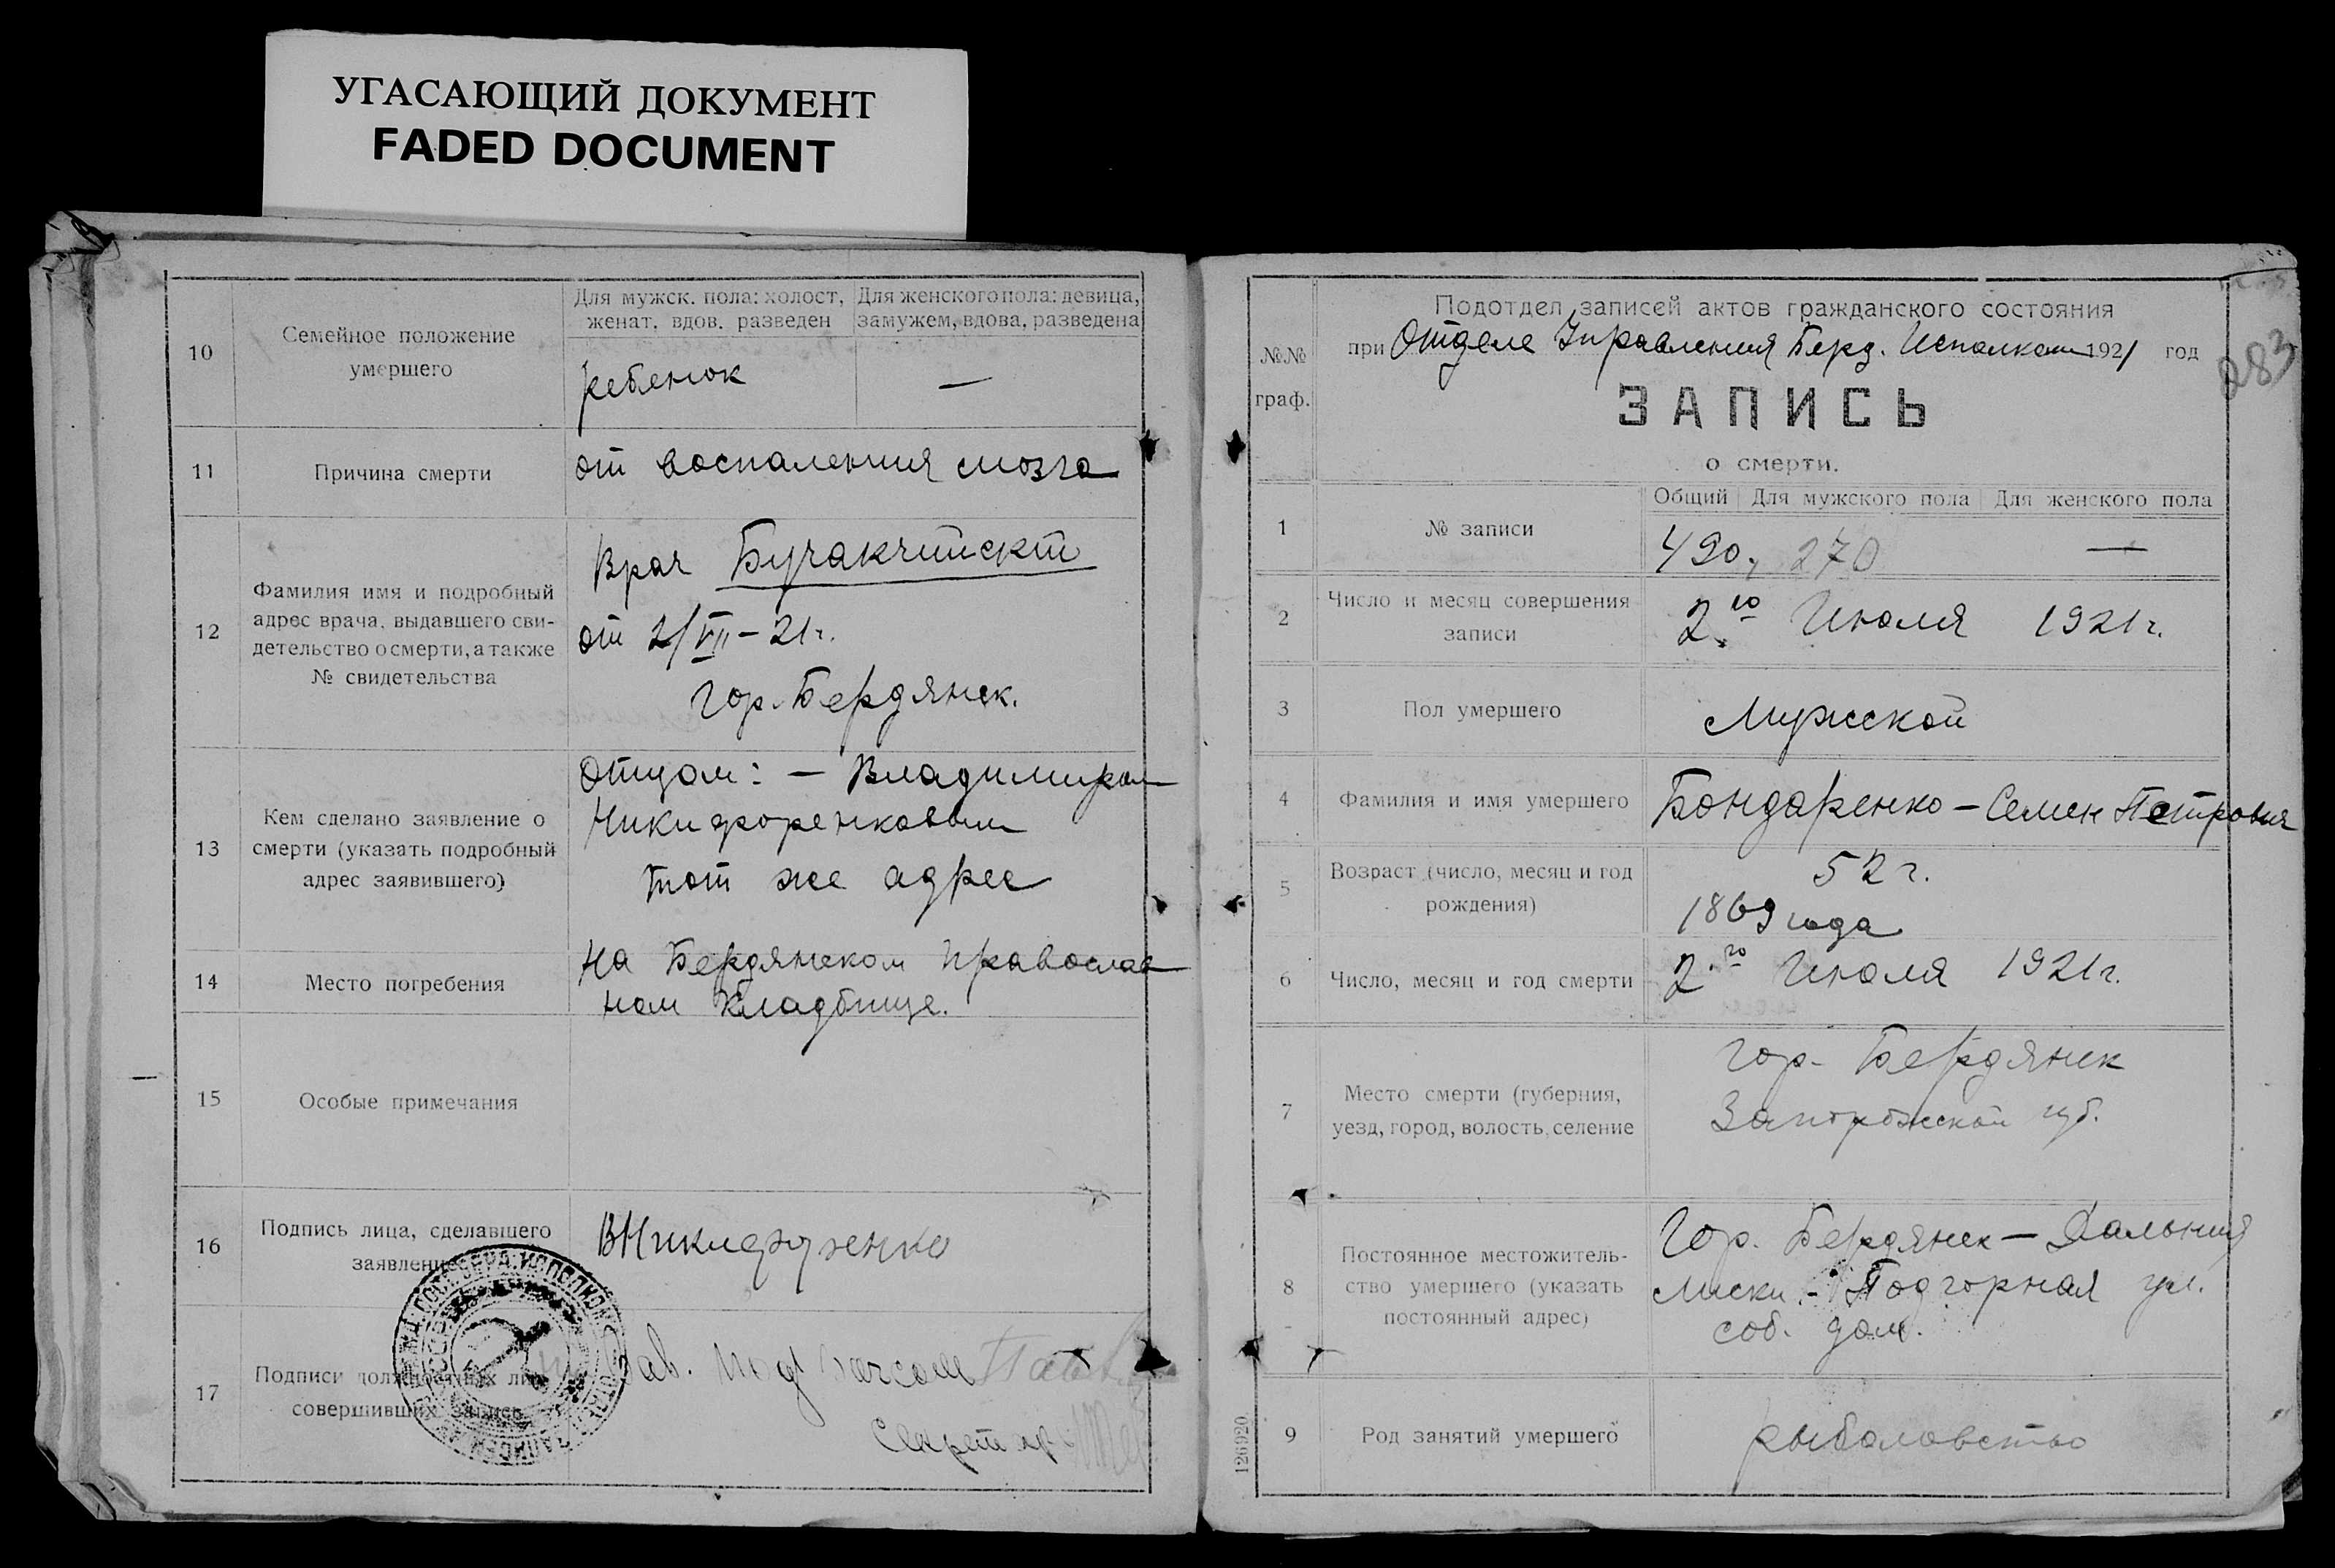 УГАСАЮЩИЙ ДОКУМЕНТ
FADED DOCUMENT
10
Семейное положение
умершего
Для мужск. пола: холост,
женат, вдов, разведен
Для женского пола: девица,
замужем, вдова, разведена
ребенок
—
11
Причина смерти
от воспаления мозга
12
Фамилия имя и подробный
адрес врача, выдавшего сви-
детельство о смерти, а также
№ свидетельства
Врач
от 2/VII – 21 г.
гор. Бердянск.
13
Кем сделано заявление о
смерти (указать подробный
адрес заявившего)
Отцом: – Владимиром
Никифоренковым
тот же адрес
14
Место погребения
на Бердянском православ
ном кладбище.
15
Особые примечания
16
Подпись лица, сделавшего
заявление
ВНикифоренко
17
Подписи должностных лиц
совершивших запись
Зав. Под
Секретарь
№№
граф.
Подотдел записей актов гражданского состояния
при Отделе Управления Берд. Исполкома 1921 год
283
ЗАПИСЬ
о смерти.
1
№ записи
Общий
Для мужского пола
Для женского пола
490, 270 —
2
Число и месяц совершения
записи
2го Июля 1921 г.
3
Пол умершего
Мужской
4
Фамилия и имя умершего
Бондаренко – Семен Петрович
5
Возраст (число, месяц и год
рождения)
52 г.
1869 года
6
Число, месяц и год смерти
2.го Июля 1921 г.
7
Место смерти (губерния,
уезд, город, волость, селение
гор. Бердянск
Запорожской губ.
8
Постоянное местожитель-
ство умершего (указать
постоянный адрес)
Гор. Бердянск – Дальния
Лиски. – Подгорная ул.
соб. дом.
9
Род занятий умершего
рыболовство
126920